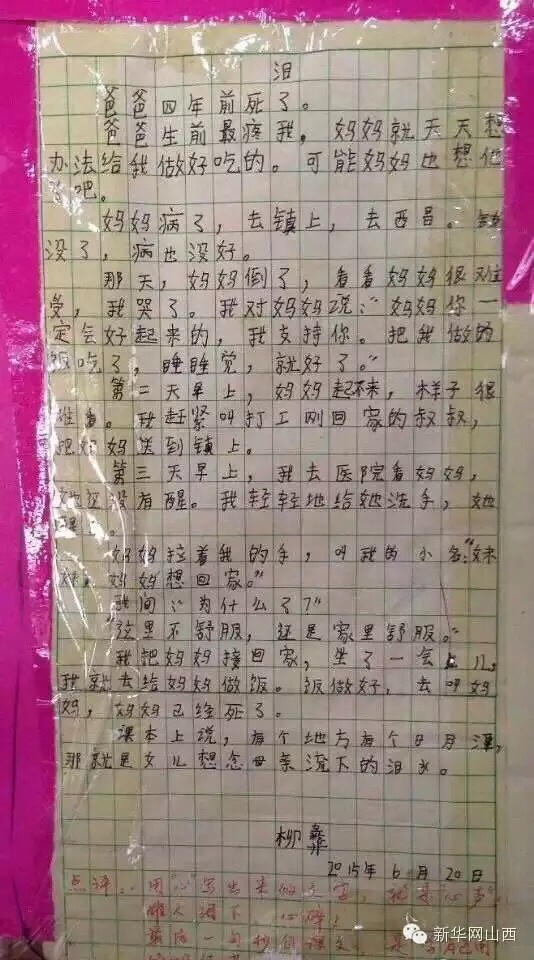 泪
爸爸四年前死了。
爸爸生前最疼我，妈妈就天天想
办法给我做好吃的。可能妈妈也想他
了吧。
妈妈病了，去镇上，去西昌。钱
没了，病也没好。
那天，妈妈倒了，看看妈妈很难
受，我哭了。我对妈妈说：“妈妈你一
定会好起来的，我支持你。把我做的
饭吃了，睡睡觉，就好了。”
第二天早上，妈妈起不来，样子很
难看。我赶紧叫打工刚回家的叔叔，
把妈妈送到镇上。
第三天早上，我去医院看妈妈，
她还没有醒。我轻轻地给她洗手，她
醒了。
妈妈拉着我的手，叫我的小名：“妹
妹，妈妈想回家。”
我问：“为什么了？”
“这里不舒服，还是家里舒服。”
我把妈妈接回家，坐了一会儿，
我就去给妈妈做饭。饭做好，去叫妈
妈，妈妈已经死了。
课本上说，有个地方有个日月潭，
那就是女儿想念母亲流下的泪水。
柳彝
2015年6月20日
点评：用“心”写出来的文字，就是“心声”，
催人泪下，心碎！
新华网山西